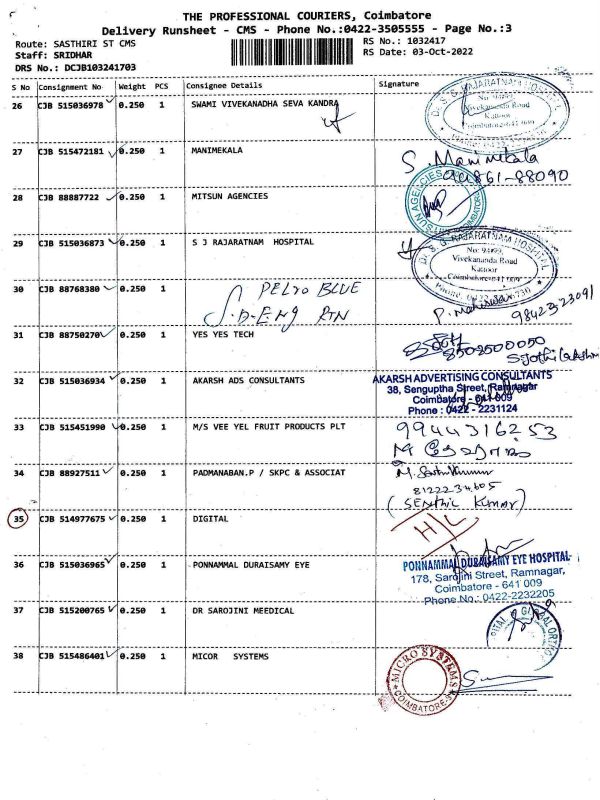 THE PROFESSIONAL COURIERS, Coimbatore
Delivery Runsheet - CMS - Phone No.:0422-3505555 - Page No.:3
Route: SASTHIRI ST CMS RS No.: 1032417
Staff: SRIDHAR RS Date: 03-Oct-2022
DRS No.: DCJB103241703
S No Consignment No Weight PCS Consignee Details Signature
26 CJB 515036978 0.250 1 SWAMI VIVEKANADHA SEVA KANDRA
Dr. S. G. RAJARATNAM HOSPITAL
Vivekananda Road
Kattoor
27 CJB 515472181 0.250 1 MANIMEKALA S. Manimekala
28 CJB 88887722 0.250 1 MITSUN AGENCIES
29 CJB 515036873 0.250 1 S J RAJARATNAM HOSPITAL
Dr. S. G. RAJARATNAM HOSPITAL
No: 94/99,
Vivekananda Road
Kattoor
30 CJB 88768380 1 PELYO BLUE
S.D-ENG RTN
31 CJB 88750270 0.250 1 YES YES TECH 8502500050
32 CJB 515036934 0.250 1 AKARSH ADS CONSULTANTS
AKARSH ADVERTISING CONSULTANTS
38, Senguptha Street, Ramnagar
Coimbatore - 641 009
Phone : 0422 - 2231124
33 CJB 515451990 0.250 1 M/S VEE YEL FRUIT PRODUCTS PLT 9944316253
34 CJB 88927511 0.250 1 PADMANABAN.P / SKPC & ASSOCIAT
8122234605
(SENTHIL KUMAR)
35 CJB 514977675 0.250 1 DIGITAL H/L
36 CJB 515036965 0.250 1 PONNAMMAL DURAISAMY EYE
PONNAMMAL DURAISAMY EYE HOSPITAL
178, Sarojini Street, Ramnagar,
Coimbatore - 641 009
Phone No.: 0422-2232205
37 CJB 515200765 0.250 1 DR SAROJINI MEEDICAL
38 CJB 515486401 0.250 1 MICOR SYSTEMS
MICRO SYSTEMS
COIMBATORE-9